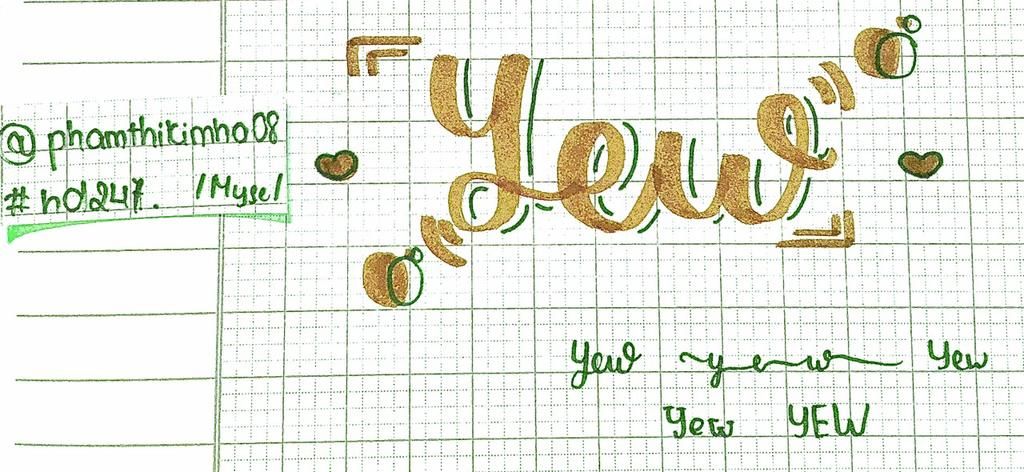 Yew
@phamthikimho08
#hd247. /Myse/
Yew yew Yew
Yew YEW